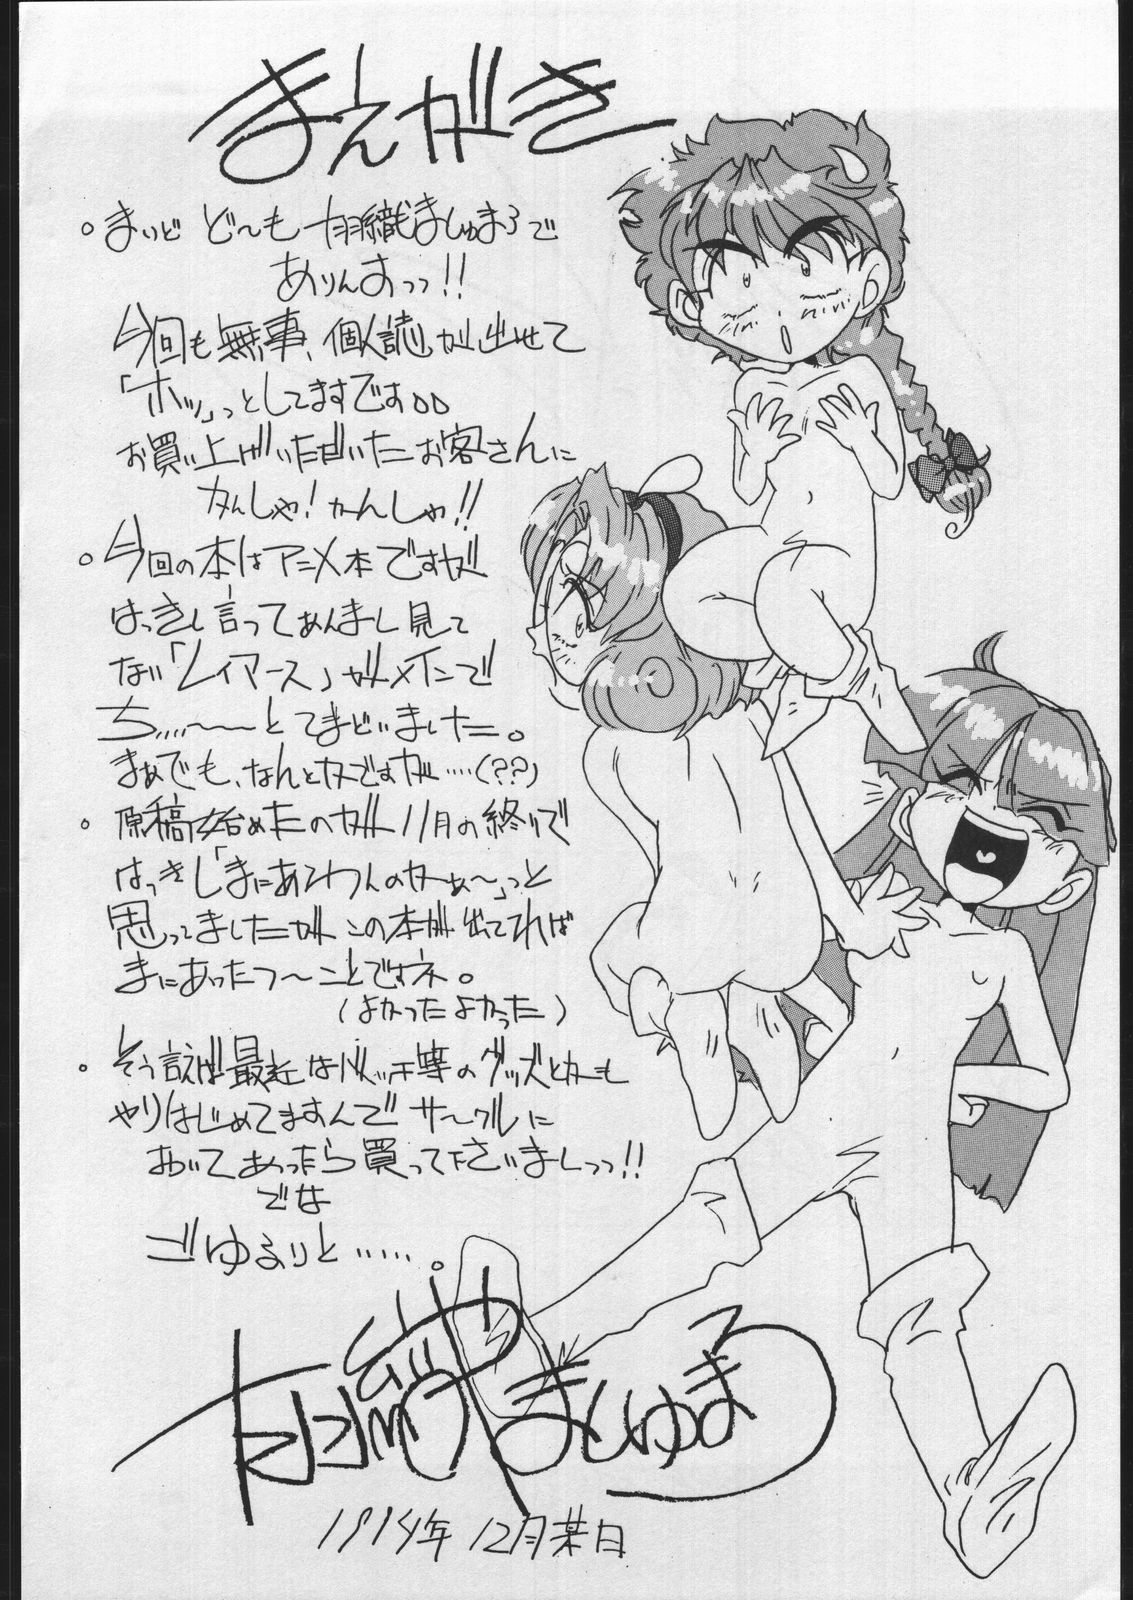 まえがき
まいど ど〜も 羽織ましゅまろで
ありんすっっ!!
今回も無事、個人誌が出せて
「ホッ」っとしてますですゥゥ
お買い上げいただいたお客さんに
かんしゃ!かんしゃ!!
今回の本はアニメ本ですが
はっきし言ってあんまし見て
ない「レイアース」がメインで
ち,,,,〜〜〜とてまどいました。
まぁでも、なんとかですが……(??)
原稿始めたのが11月の終りで
はっきし「まにあてわんのかぁ〜」っと
思ってましたが この本が出てれば
まにあったっつ〜ことですネ。
(よかったよかった)
そう言えば最近はバッチ等のグッズとかも
やりはじめてますんで サークルに
おいてあったら買って下さいましっっ!!
でわ
ごゆるりと……。
羽織ましゅまろ
1994年 12月某日